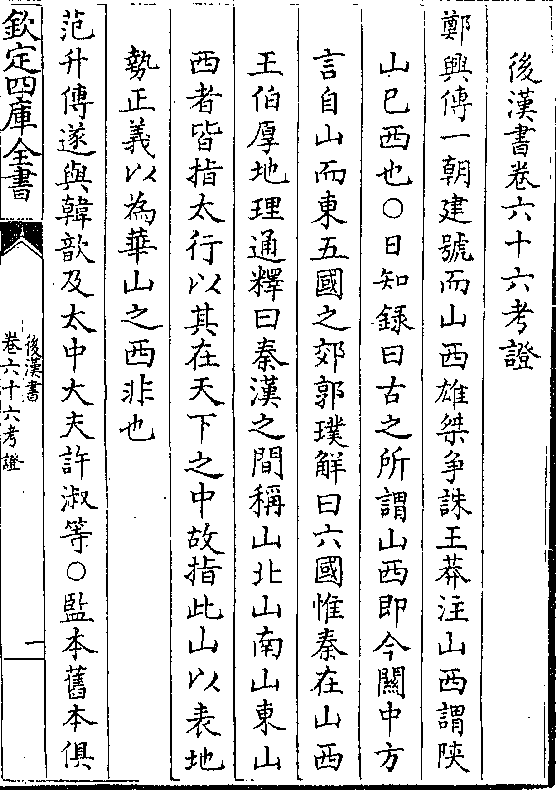 後漢書卷六十六考證
鄭興傳一朝建號而山西雄桀爭誅王莽注山西謂陝
山已西也○日知録曰古之所謂山西即今關中方
言自山而東五國之郊郭璞解曰六國惟秦在山西
王伯厚地理通釋曰秦漢之間稱山北山南山東山
西者皆指太行以其在天下之中故指此山以表地
勢正義以為華山之西非也
范升傳遂與韓歆及太中大夫許淑等○監本舊本俱
欽定四庫全書
後漢書
卷六十六考證
一